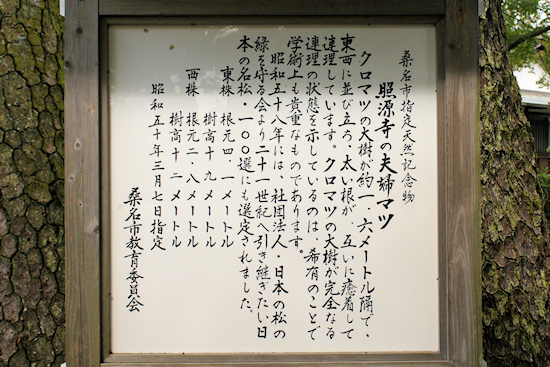 桑名市指定天然記念物
照源寺の夫婦マツ
クロマツの大樹が約一・六メートル隔で、
東西に並び立ち、太い根が、互いに癒着して
連理しています。クロマツの大樹が完全なる
連理の状態を示しているのは、希有のことで
学術上も貴重なものであります。
昭和五十八年には、社団法人・日本の松の
緑を守る会より二十一世紀へ引き継ぎたい日
本の名松・一〇〇選にも選定されました。
東株 根元四・一メートル
樹高十九メートル
西株 根元二・八メートル
樹高十二メートル
昭和五十年三月七日指定
桑名市教育委員会